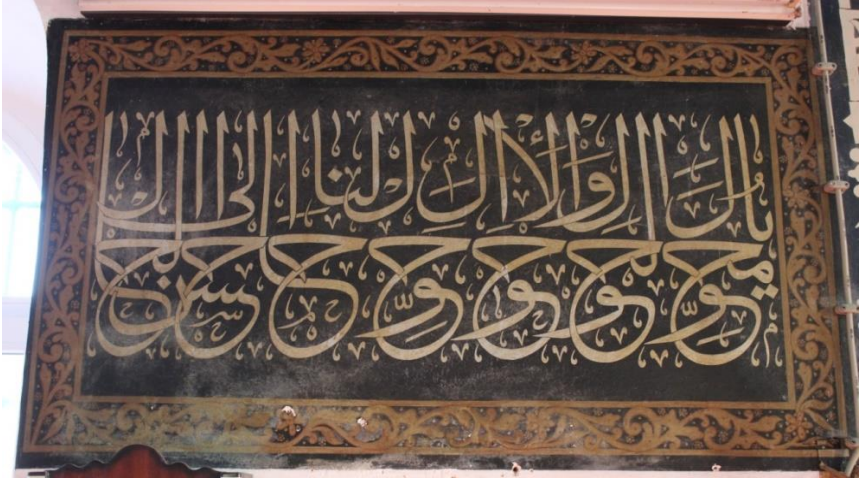 يا محول الحول والأحوال حول حالنا إلى أحسن الحال